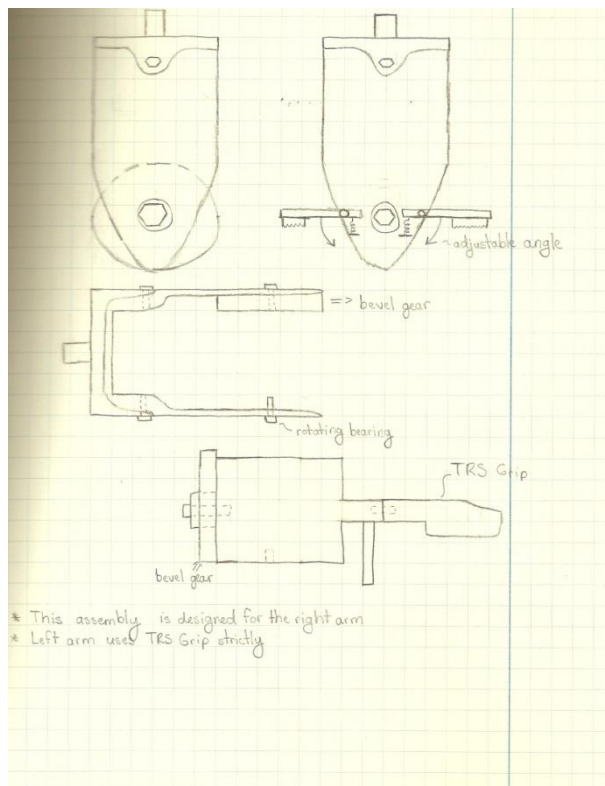 adjustable angle
=> bevel gear
rotating bearing
TRS Grip
bevel gear
* This assembly is designed for the right arm
* Left arm uses TRS Grip strictly